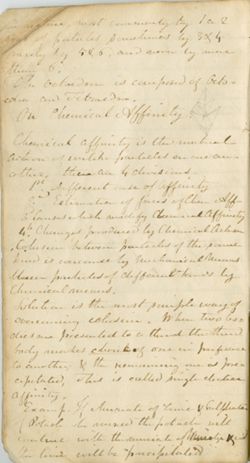 most commonly by 1 or 2
sets of particles sometimes by 3 & 4
rarely by 5 & 6, and never by more
than 6.
The Octaedron is composed of Octo-
and Tetraedra.
On Chemical Affinity
Chemical affinity is the mutual
action of unlike particles on one an-
other, there are 4 divisions.
1st Different case of affinity
2 Estimation of forces of Chem. Aff-
3 Causes which modify Chemical Affinity
4th Changes produced by Chemical Action
Cohesion between particles of the same
kind is overcome by mechanical means
between particles of different kinds by
Chemical means.
Solution is the most simple way of
overcoming cohesion. When two bo-
dies are presented to a third the third
body makes choice of one in preference
to another & the remaining one is pre-
cipitated, This is called single elective
affinity.
Examp. If Muriate of Lime & Sulphate
of Potash be mixed the potash will
combine with the muriatic
the lime will be precipitated